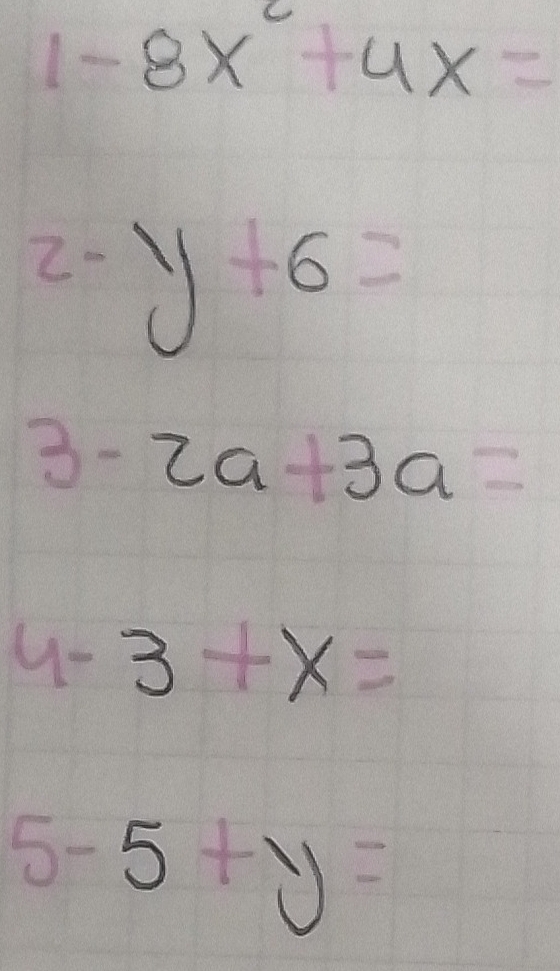 1- 8x² + 4x =
2- y + 6 =
3- 2a + 3a =
4- 3 + x =
5- 5 + y =